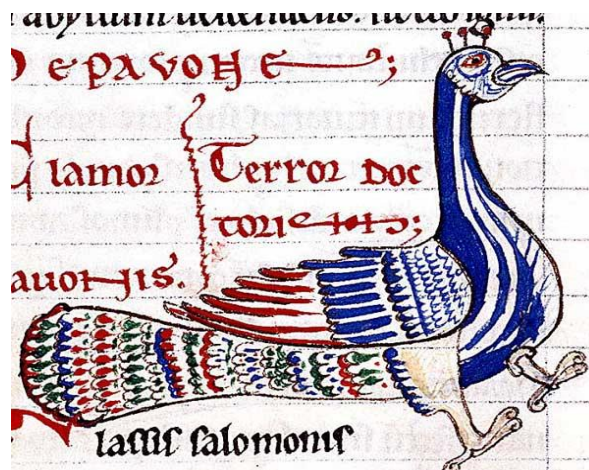 De pavone;
Clamor
Terror doc
toris;
avonis.
lassis salomonis